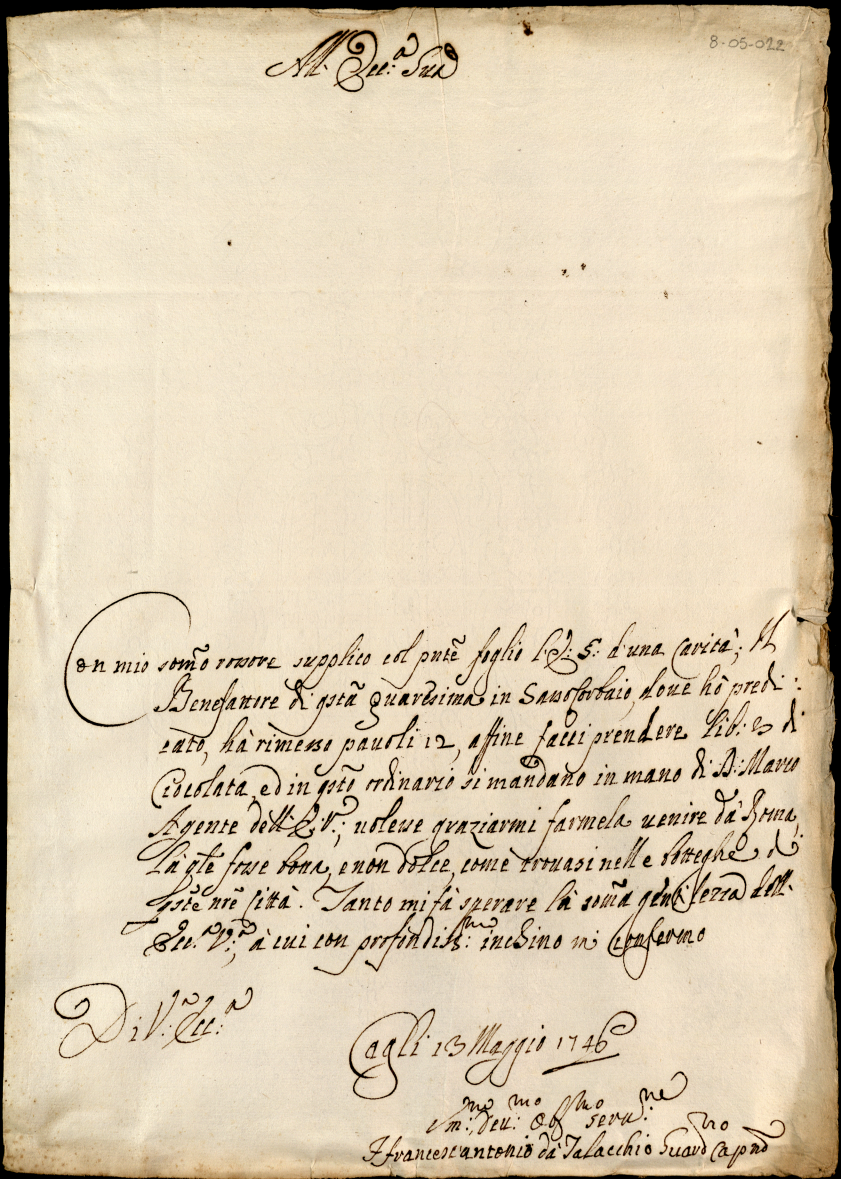 8-05-022
All'Ecc:ª Sua
Con mio som̃o rossore supplico col pñte foglio l'E: S: d'una Carità; Il
Benefattore di q̃sta Quaresima in Sassocorbaio, doue hò predi:
cato, hà rimesso pauoli 12, affine facci prendere lib: 3 di
Ciocolata, ed in q̃sto ordinario si mandano in mano di D: Marco
Agente dell'E: V:, uolesse graziarmi farmela uenire dà Roma,
là q̃le fosse bona, e non dolce, come trouasi nelle botteghe di
q̃ste nr̃e Città. Tanto mi fà sperare là som̃a gentilezza dell'
Ecc:ª V:ª, à cui con profondiss:mo inchino mi confermo
Di V:ª Ecc:ª
Cagli 13 Maggio 1746
Vm:mo deu:mo Obl:mo seru:ne
F. Francescantonio dà Talacchio Guard:no Capño